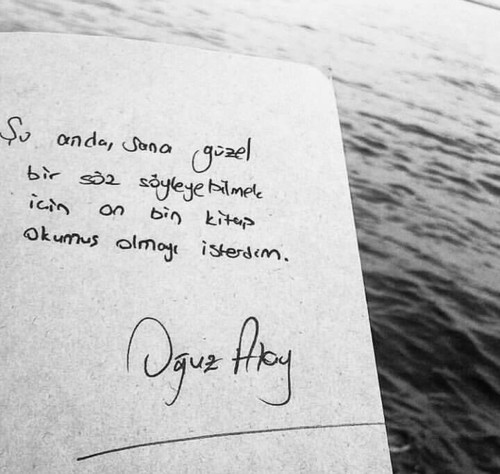 Şu anda, sana güzel
bir söz söyleyebilmek
için on bin kitap
okumuş olmayı isterdim.
Oğuz Atay